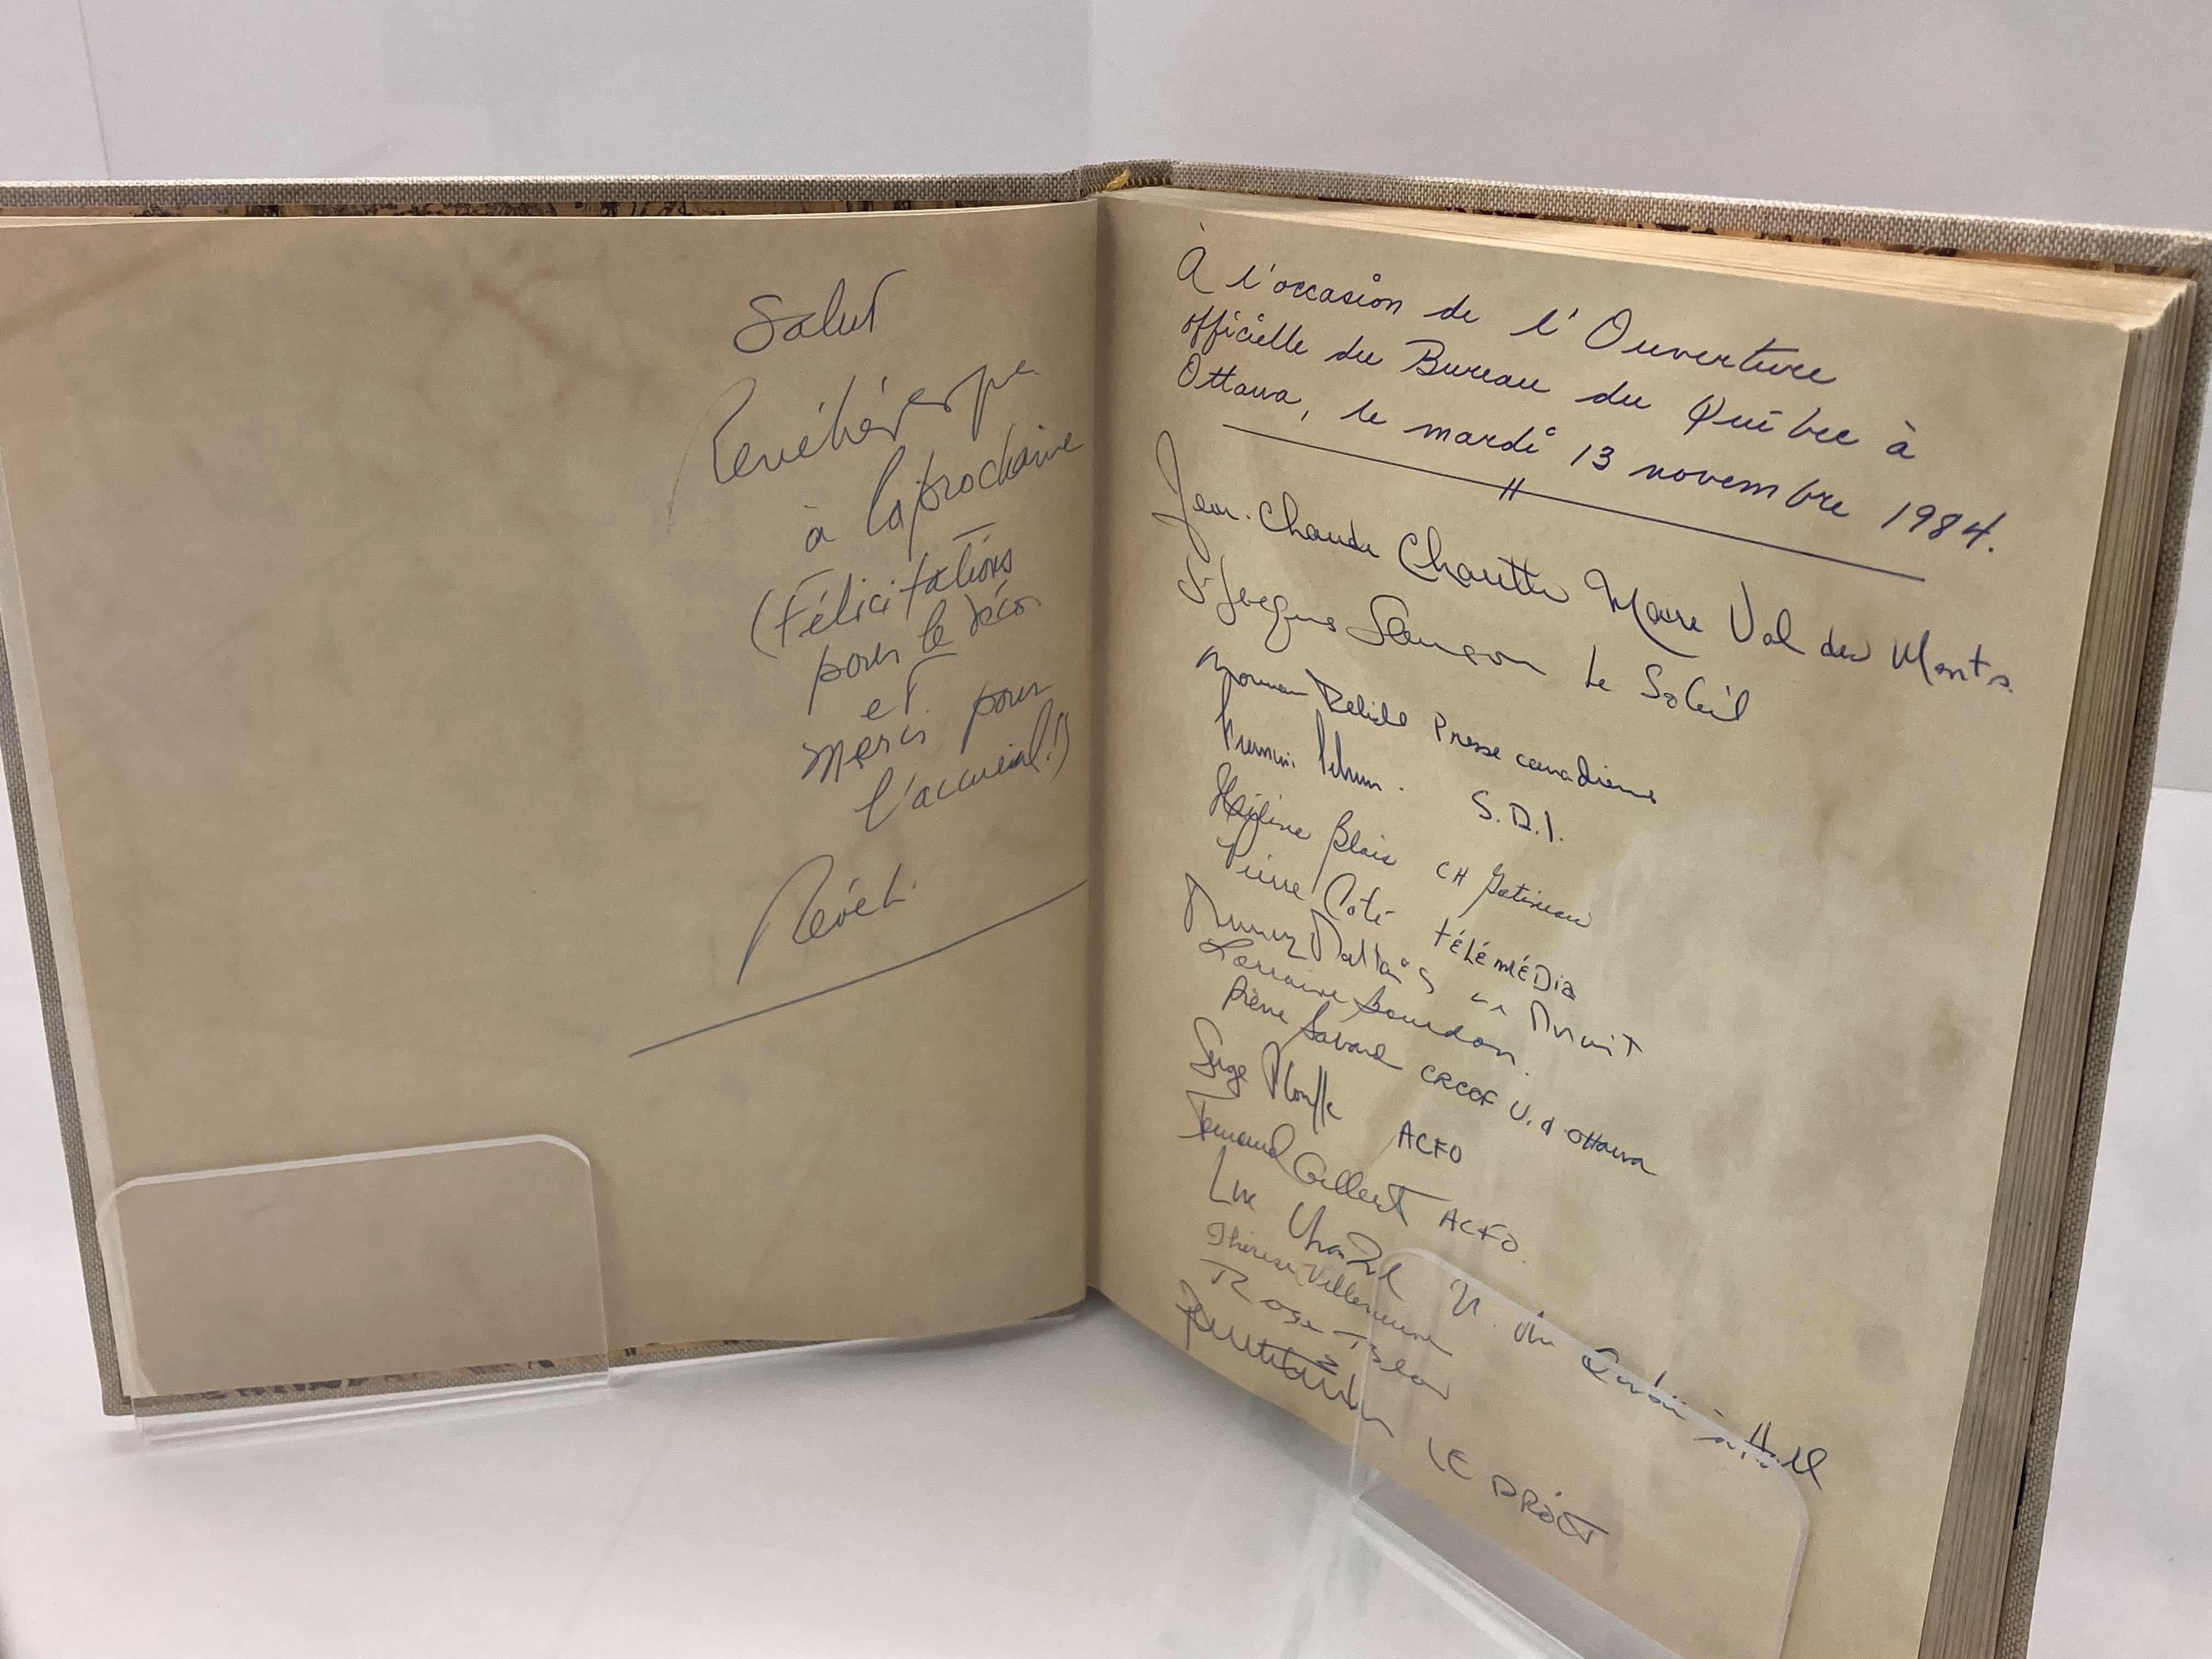 Salut
à la prochaine
(Félicitations
pour le décor
et
merci pour
l'accueil!)
À l'occasion de l'Ouverture
officielle du Bureau du Québec à
Ottawa, le mardi 13 novembre 1984.
Jean-Claude Maire Val des Monts
Jacques Samson Le Soleil
Norman Delisle Presse canadienne
S.D.I.
Hélène Blais CH Gatineau
Pierre Côté TÉLÉMÉDIA
Lorraine Bourdon
Pierre Savard CRCCF U. d'Ottawa
Serge Plouffe ACFO
Fernand Gilbert ACFO
Luc U. du Québec à Hull
Thérèse Villeneuve
LE DROIT